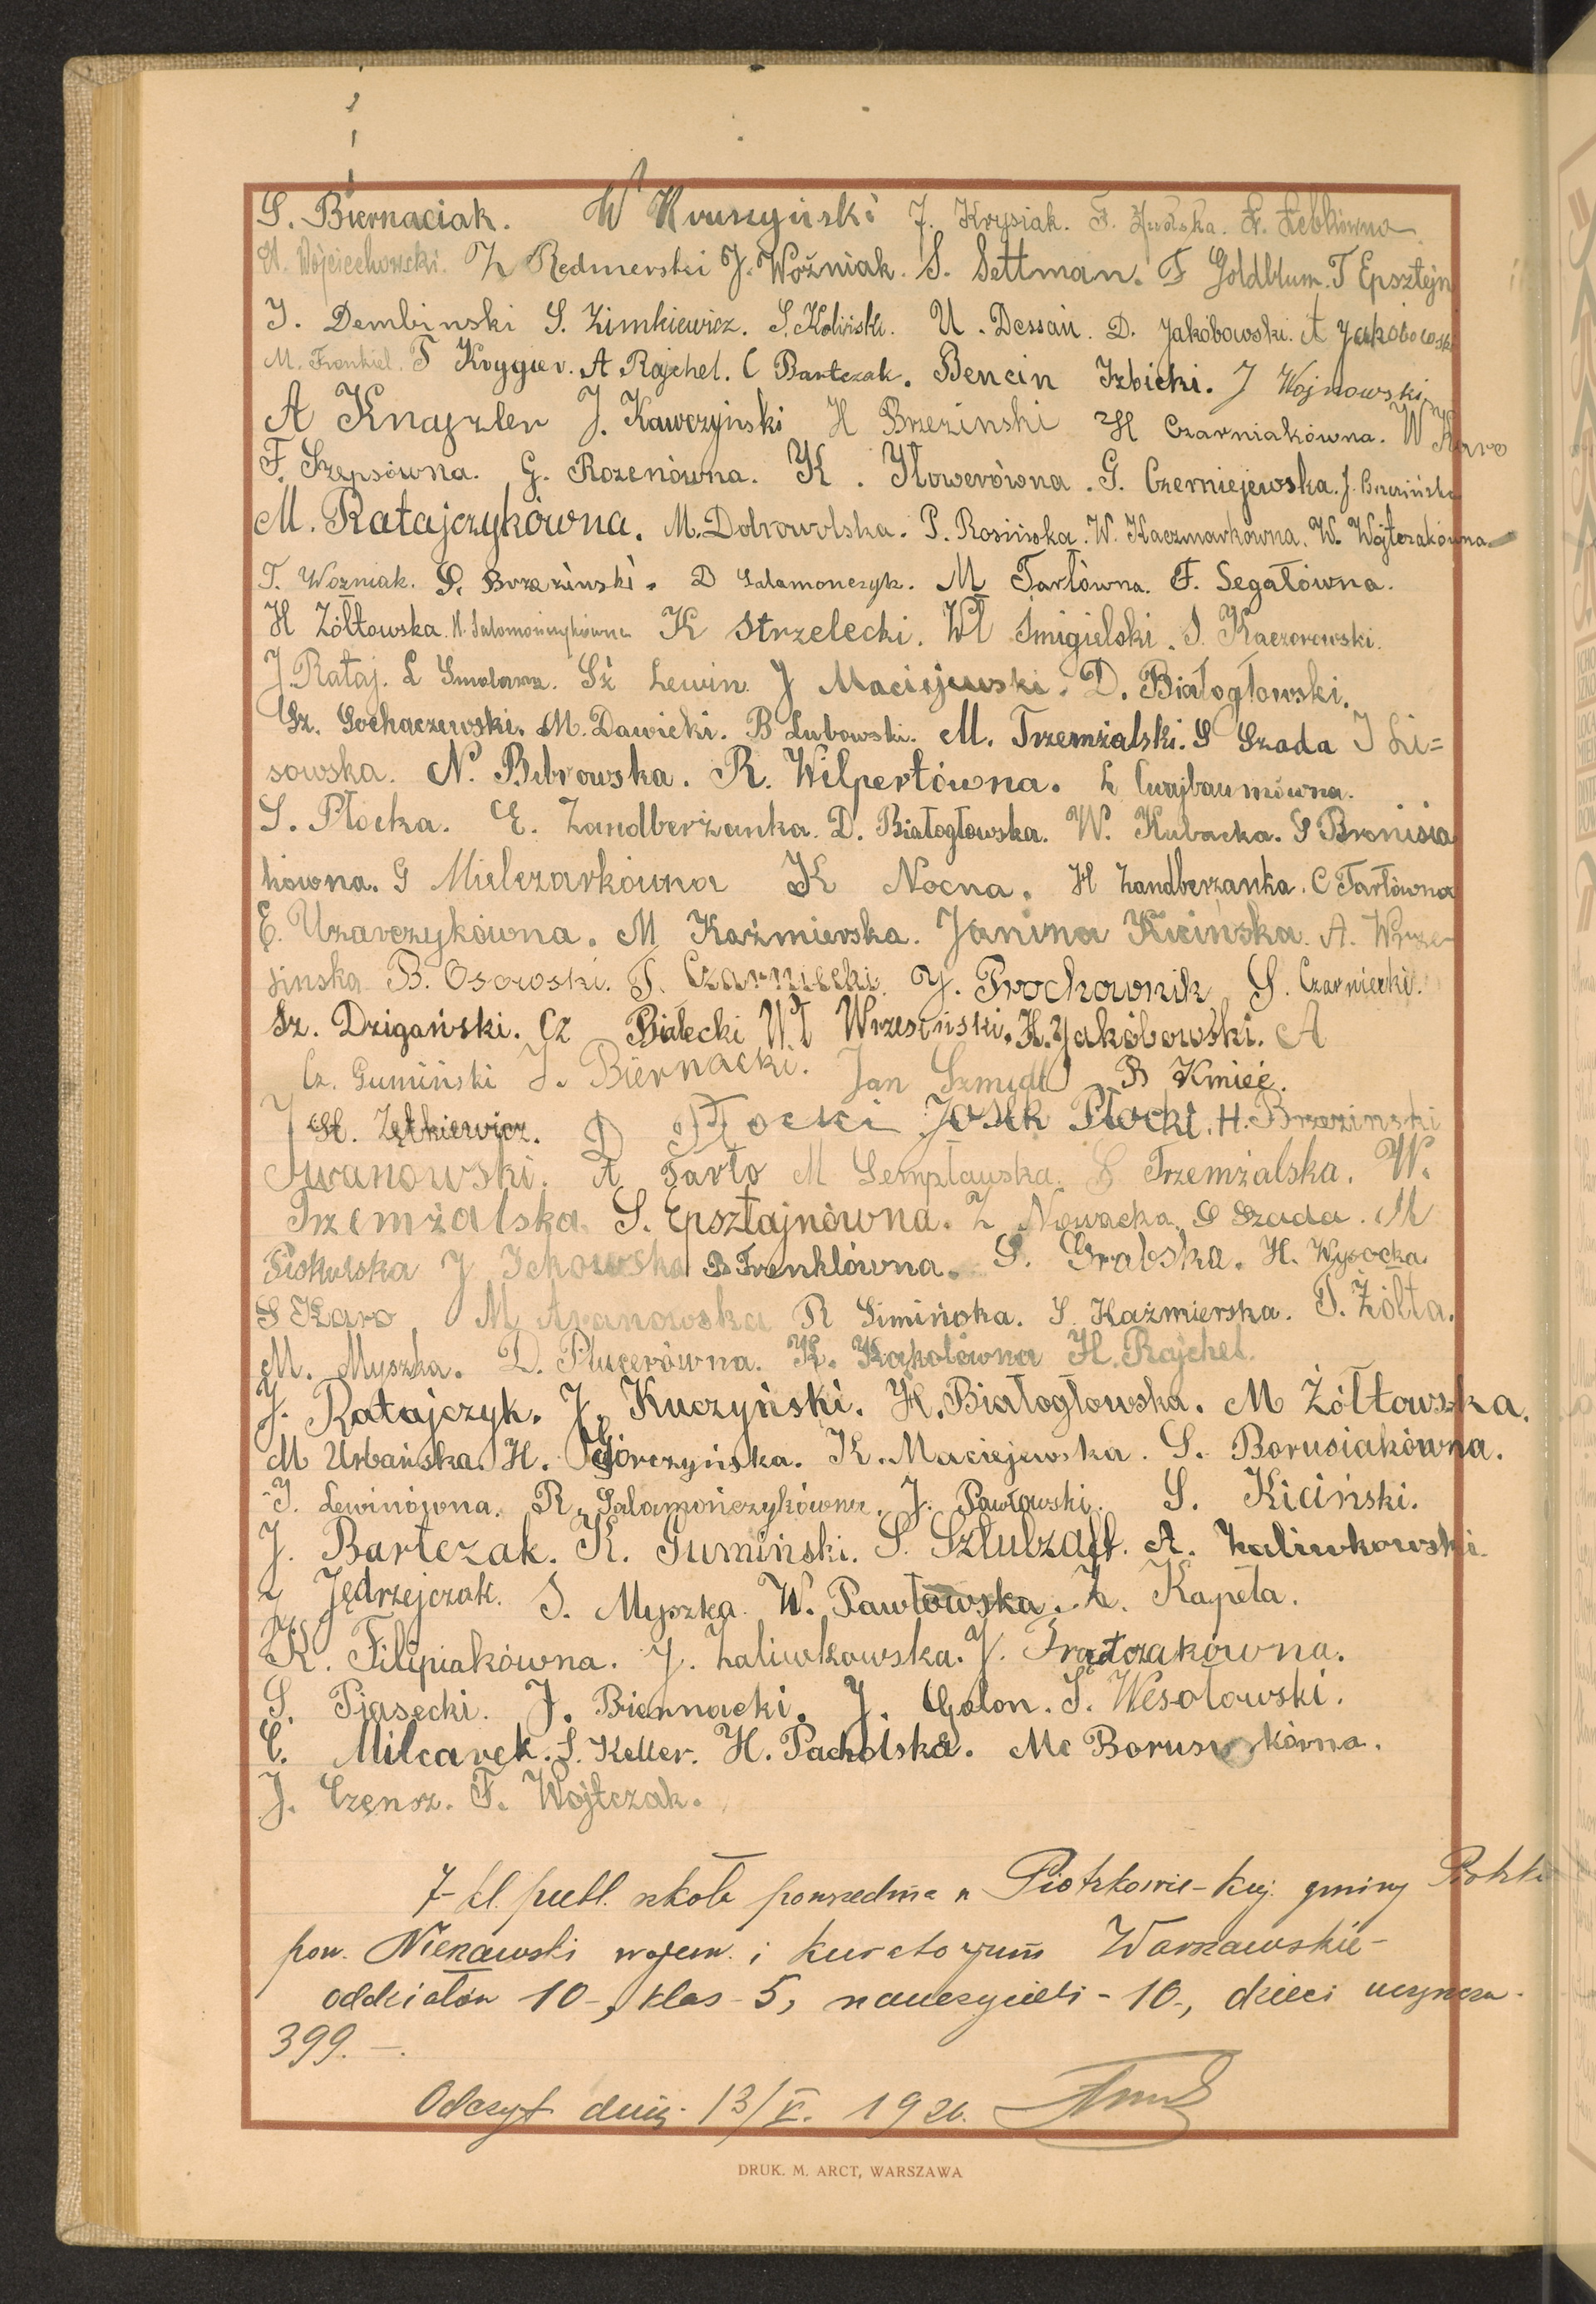 S. Biernaciak. W Kruszyński J. Krysiak. F. Żudska. Ł. Lebkówna
A. Wójciechowski. Z Redmerski J. Woźniak. S. Settman. F Goldblum. T Epsztejn
J. Dembinski S. Zimkiewicz. S. Koliński. U. Dessau. D. Jakóbowski. A Jakobowski
M. Frankiel. F Krygier. A Rajchel. C Bartczak. Bencin Izbicki. J Wojnowski.
A Knajzler J. Kawczyński H Brzezinski H Czarniakówna. W Karo
F. Szepsówna. G. Rozenówna. K. Iłowerówna. G. Czerniejewska. J. Brzezińska
M. Ratajczykówna. M. Dobrowolska. P. Rosińska. W. Kaczmarkówna. W. Wojtczakówna.
T. Wozniak. S. Brzeziński. D Salamonczyk. M Tarłówna. F. Segałówna.
H Żółtowska. H. Salomończykówna K Strzelecki. Wł Śmigielski. S. Kaczorowski.
J. Rataj. L Smolarz. Sz Lewin. J Maciejewski. D. Białogłowski.
Sz. Sochaczewski. M. Dawicki. B Lubowski. M. Trzemżalski. S Szada J Li=
sowska. N. Bibrowska. R. Wilpertówna. L Cwajbaumówna.
S. Płocka. E. Zandberżanka. D. Białogłowska. W. Kubacka. S Bronisia
kówna. G Mielczarkówna K Nocna. H Zandberzanka. C Tarłówna
E. Uzarczykówna. M Kaźmierska. Janina Kicińska. A. Wrze-
sinska B. Osowski. T. Czarniecki. J. Prochownik S. Czarniecki.
Sz. Dzigański. Cz Białecki Wł Wrzesiński. H. Jakóbowski. A
Cz. Gumiński J. Biernacki. Jan Szmydt B Kmieć.
J St. Zętkiewicz. D Płocki Josek Płocki. H. Brzezinski
Iwanowski. A Tarło M Sempławska. S Trzemżalska. W.
Trzemżalska. S. Epsztajnówna. Z Nowacka. S Szada. M
Piskulska J Ickowska B Frenklówna. S. Grabska. H. Wysocka
S Karo M Aranowska R Simińska. S. Kaźmierska. T. Żółta.
M. Myszka. D. Plucerówna. K. Kąkolówna H. Rajchel.
J. Ratajczyk. J. Kuczyński. H. Białogłowska. M Żółtowska.
M Urbańska. H. Górczyńska. K. Maciejewska. S. Borusiakówna.
J. Lewinówna. R. Salamończykówna. J. Pawłowski. S. Kiciński.
J. Bartczak. K. Gumiński. S. Sztubzaft. A. Zaliwkowski.
Z Jędrzejczak. S. Myszka. W. Pawłowska. Z. Kapeła.
K. Filipiakówna. J. Zaliwkowska. J. Fratczakówna.
S. Piasecki. J. Biernacki. J. Golon. S. Wesołowski.
C. Milcarek. S. Keller. H. Pacholska. Mc Borusiakówna.
J. Czensz. F. Wojtczak.
7-kl. publ. szkoła powszechna w Piotrkowie-Kuj. gminy Piotrków
pow. Nieszawski wojew. i kuratorjum Warszawskie-
oddziałów 10-, klas-5, nauczycieli-10-, dzieci uczęszcz.
399.-.
Odczyt dnia 13/V. 1926.
DRUK. M. ARCT, WARSZAWA